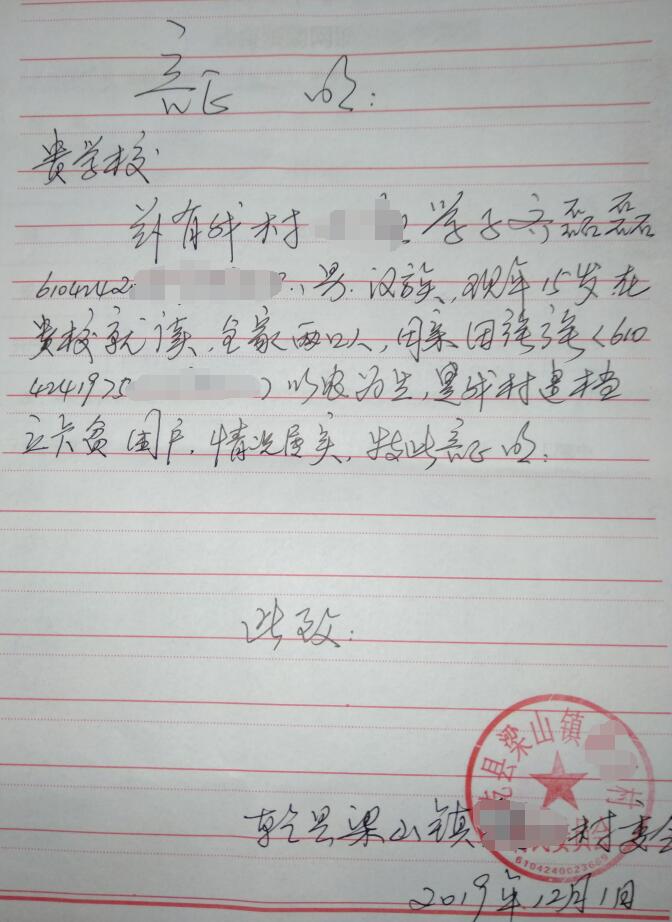 证 明:
贵学校
兹有我村 组学子 磊磊
6104242 ,男.汉族,现年15岁在
贵校就读 全家两口人,母亲田 (610
4241975 )以农为生,是我村建档
立卡贫困户.情况属实,特此证明.
此致:
县梁山镇 村
6104240023669
乾县梁山镇 村委会
2019年12月1日